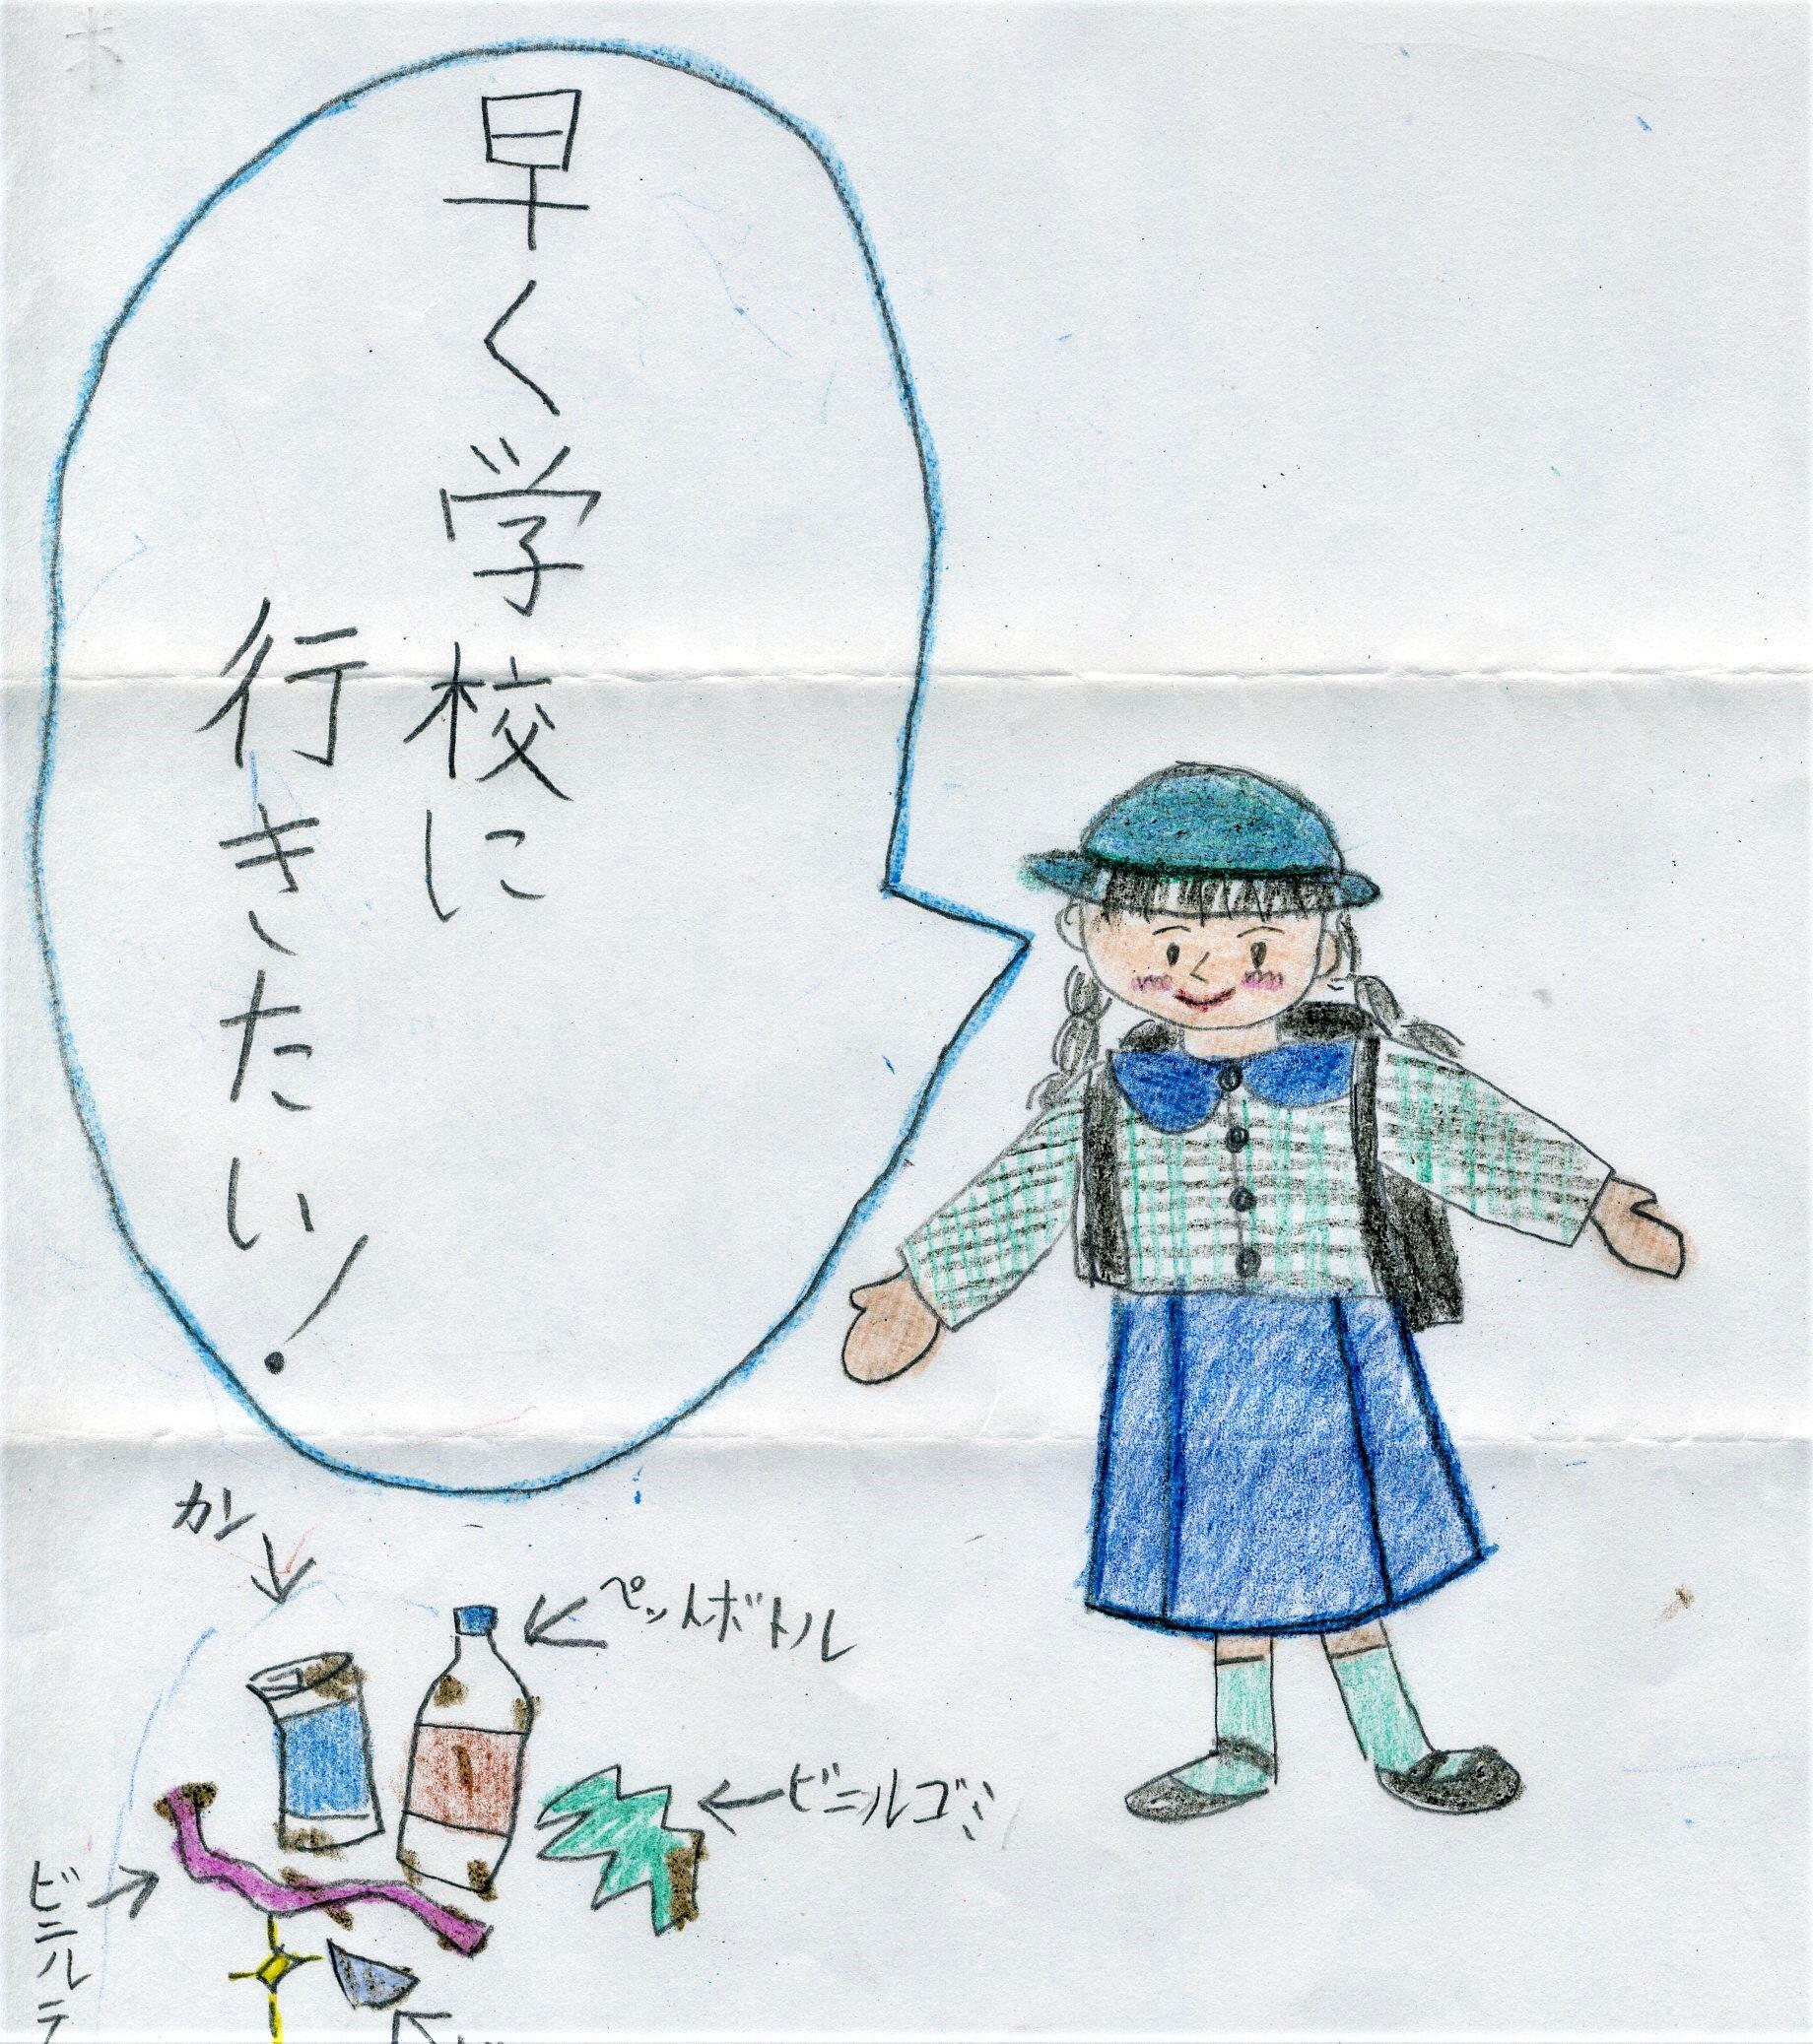 早く学校に
行きたい！
カン
ペットボトル
ビニルゴミ
ビニルテ